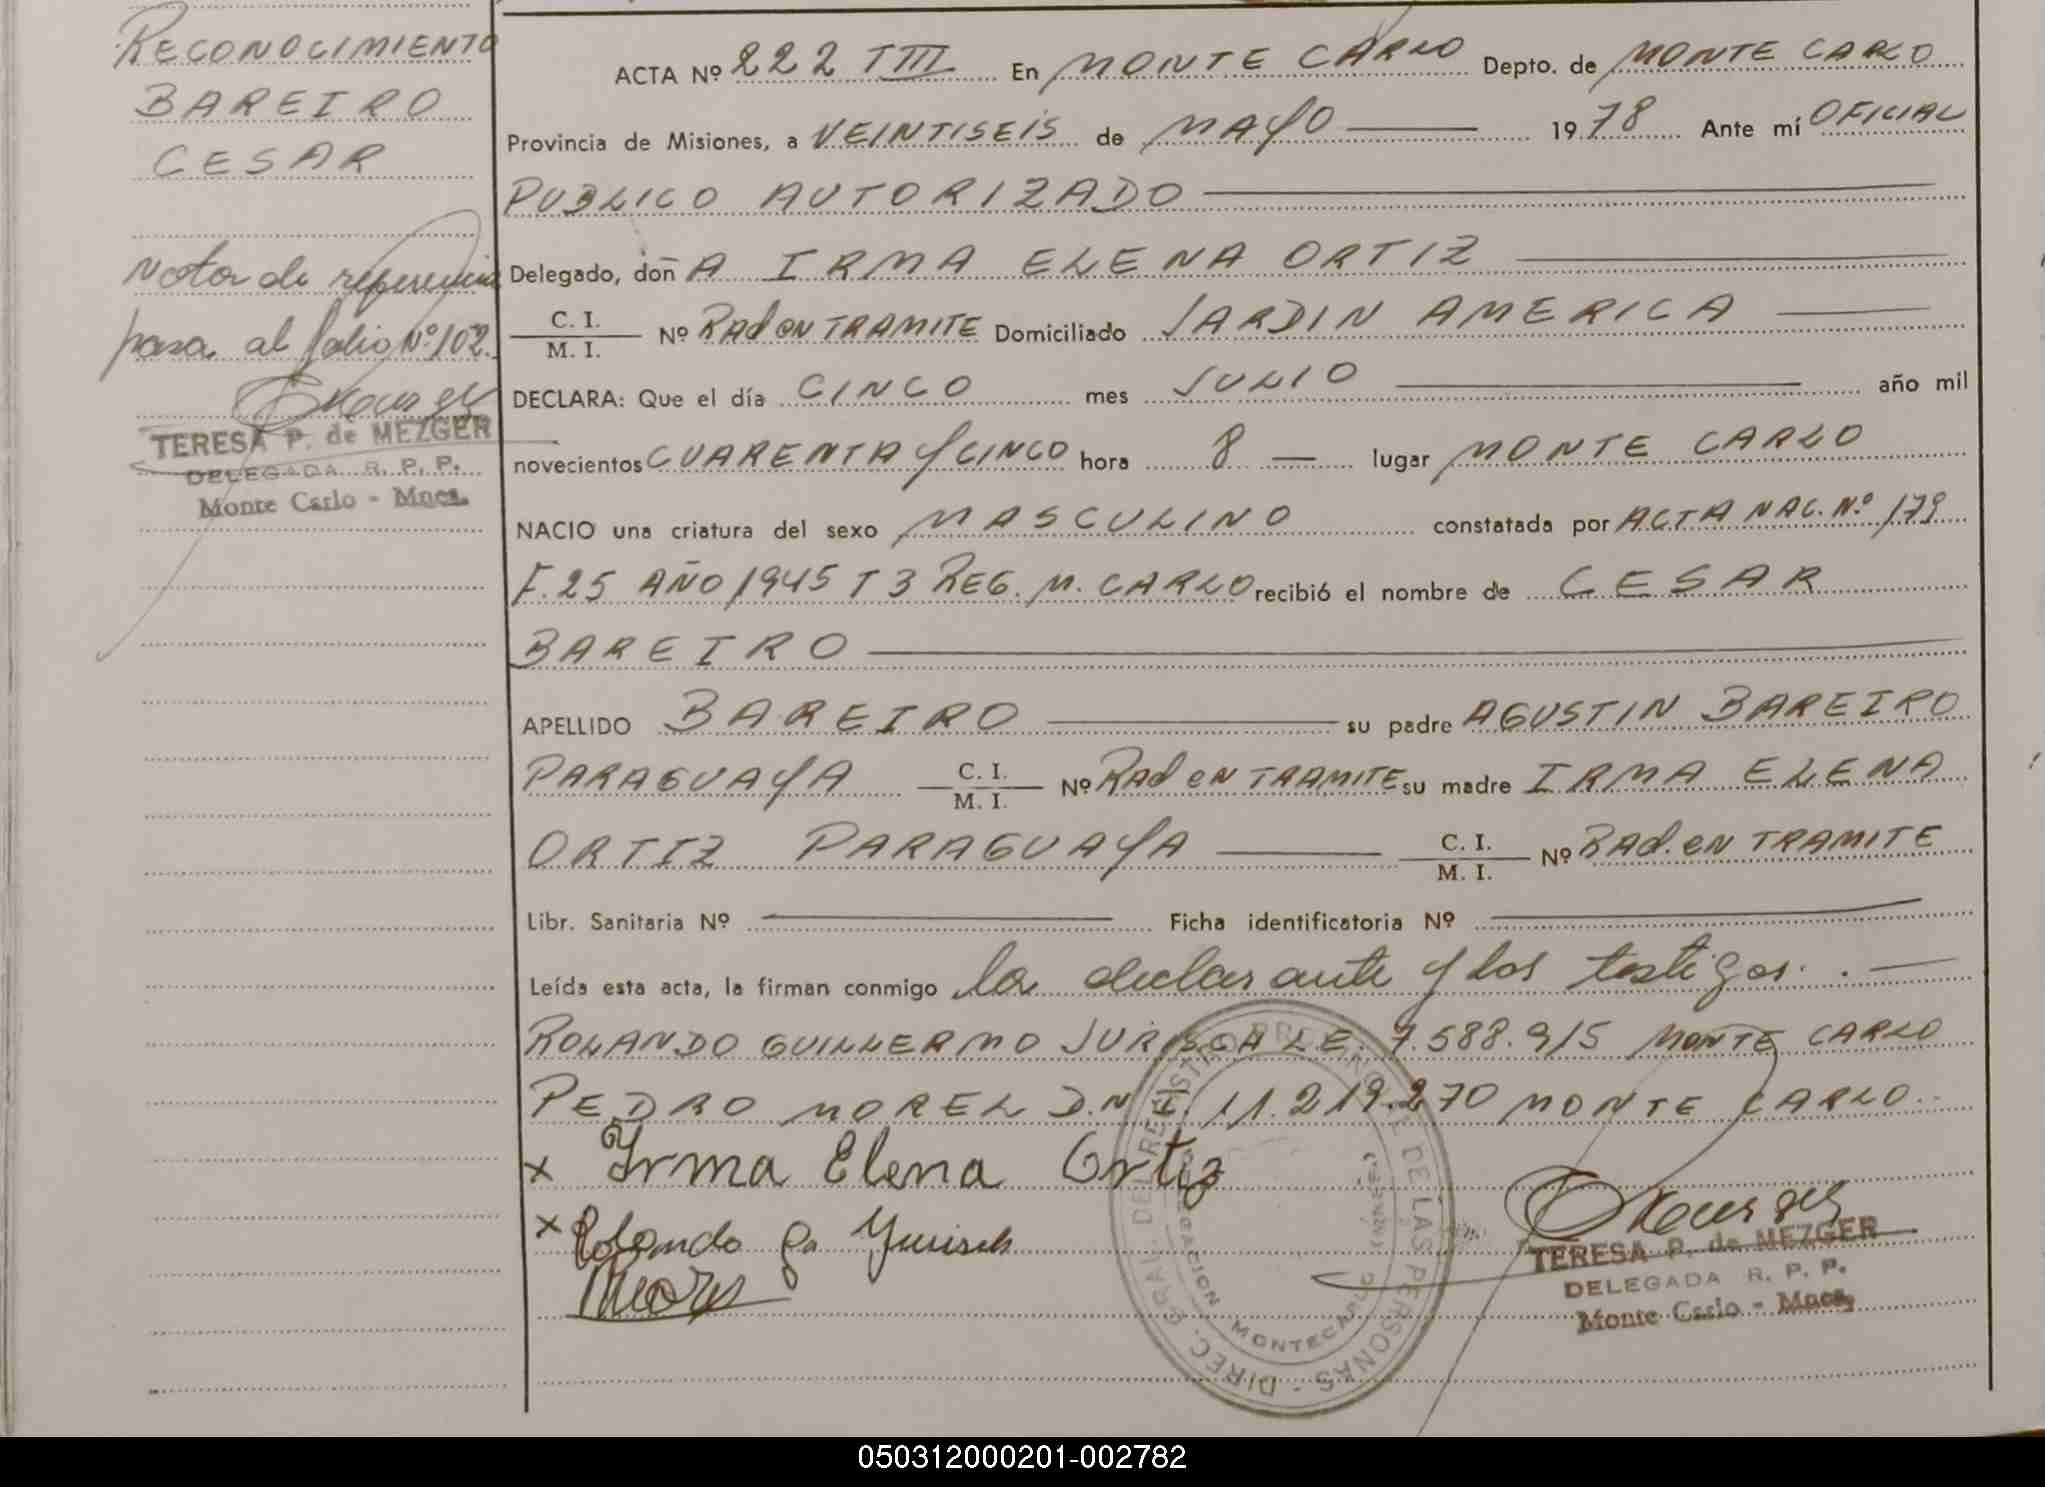 RECONOCIMIENTO
BAREIRO
CESAR
Nota de referencia
pasa al folio Nº 102.
TERESA P. de MEZGER
DELEGADA R. P. P.
Monte Carlo - Mnes.
ACTA Nº 222 TIII En MONTE CARLO Depto. de MONTE CARLO
Provincia de Misiones, a VEINTISEIS de MAYO 1978 Ante mí OFICIAL
PUBLICO AUTORIZADO
Delegado, don A IRMA ELENA ORTIZ
C. I. / M. I. Nº Rad en TRAMITE Domiciliado JARDIN AMERICA
DECLARA: Que el día CINCO mes JULIO año mil
novecientos CUARENTA Y CINCO hora 8 lugar MONTE CARLO
NACIO una criatura del sexo MASCULINO constatada por ACTA NAC. Nº 179
F. 25 AÑO 1945 T 3 REG. M. CARLO recibió el nombre de CESAR
BAREIRO
APELLIDO BAREIRO su padre AGUSTIN BAREIRO
PARAGUAYA C. I. / M. I. Nº Rad en TRAMITE su madre IRMA ELENA
ORTIZ PARAGUAYA C. I. / M. I. Nº Rad. en TRAMITE
Libr. Sanitaria Nº Ficha identificatoria Nº
Leída esta acta, la firman conmigo la declarante y los testigos.
ROLANDO GUILLERMO JURISCA L.E. 7.588.915 MONTE CARLO
PEDRO MOREL D.N.I. 11.219.270 MONTE CARLO.
x Irma Elena Ortiz
x Rolando
TERESA P. de MEZGER
DELEGADA R. P. P.
Monte Carlo - Mnes.
DIREC. GRAL. DEL REGISTRO PROVINCIAL DE LAS PERSONAS
DELEGACION MONTECARLO
(MISIONES)
050312000201-002782